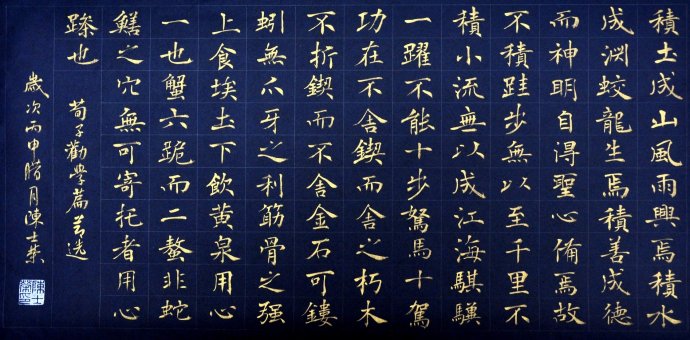 積土成山風雨興焉積水
成淵蛟龍生焉積善成德
而神明自得聖心俻焉故
不積跬步無以至千里不
積小流無以成江海騏驥
一躍不能十步駑馬十駕
功在不舍鍥而舍之朽木
不折鍥而不舍金石可鏤
蚓無爪牙之利筋骨之强
上食埃土下飲黄泉用心
一也蟹六跪而二螯非蛇
鱔之穴無可寄托者用心
躁也
荀子勸學篇节选
歲次丙申腊月陳士